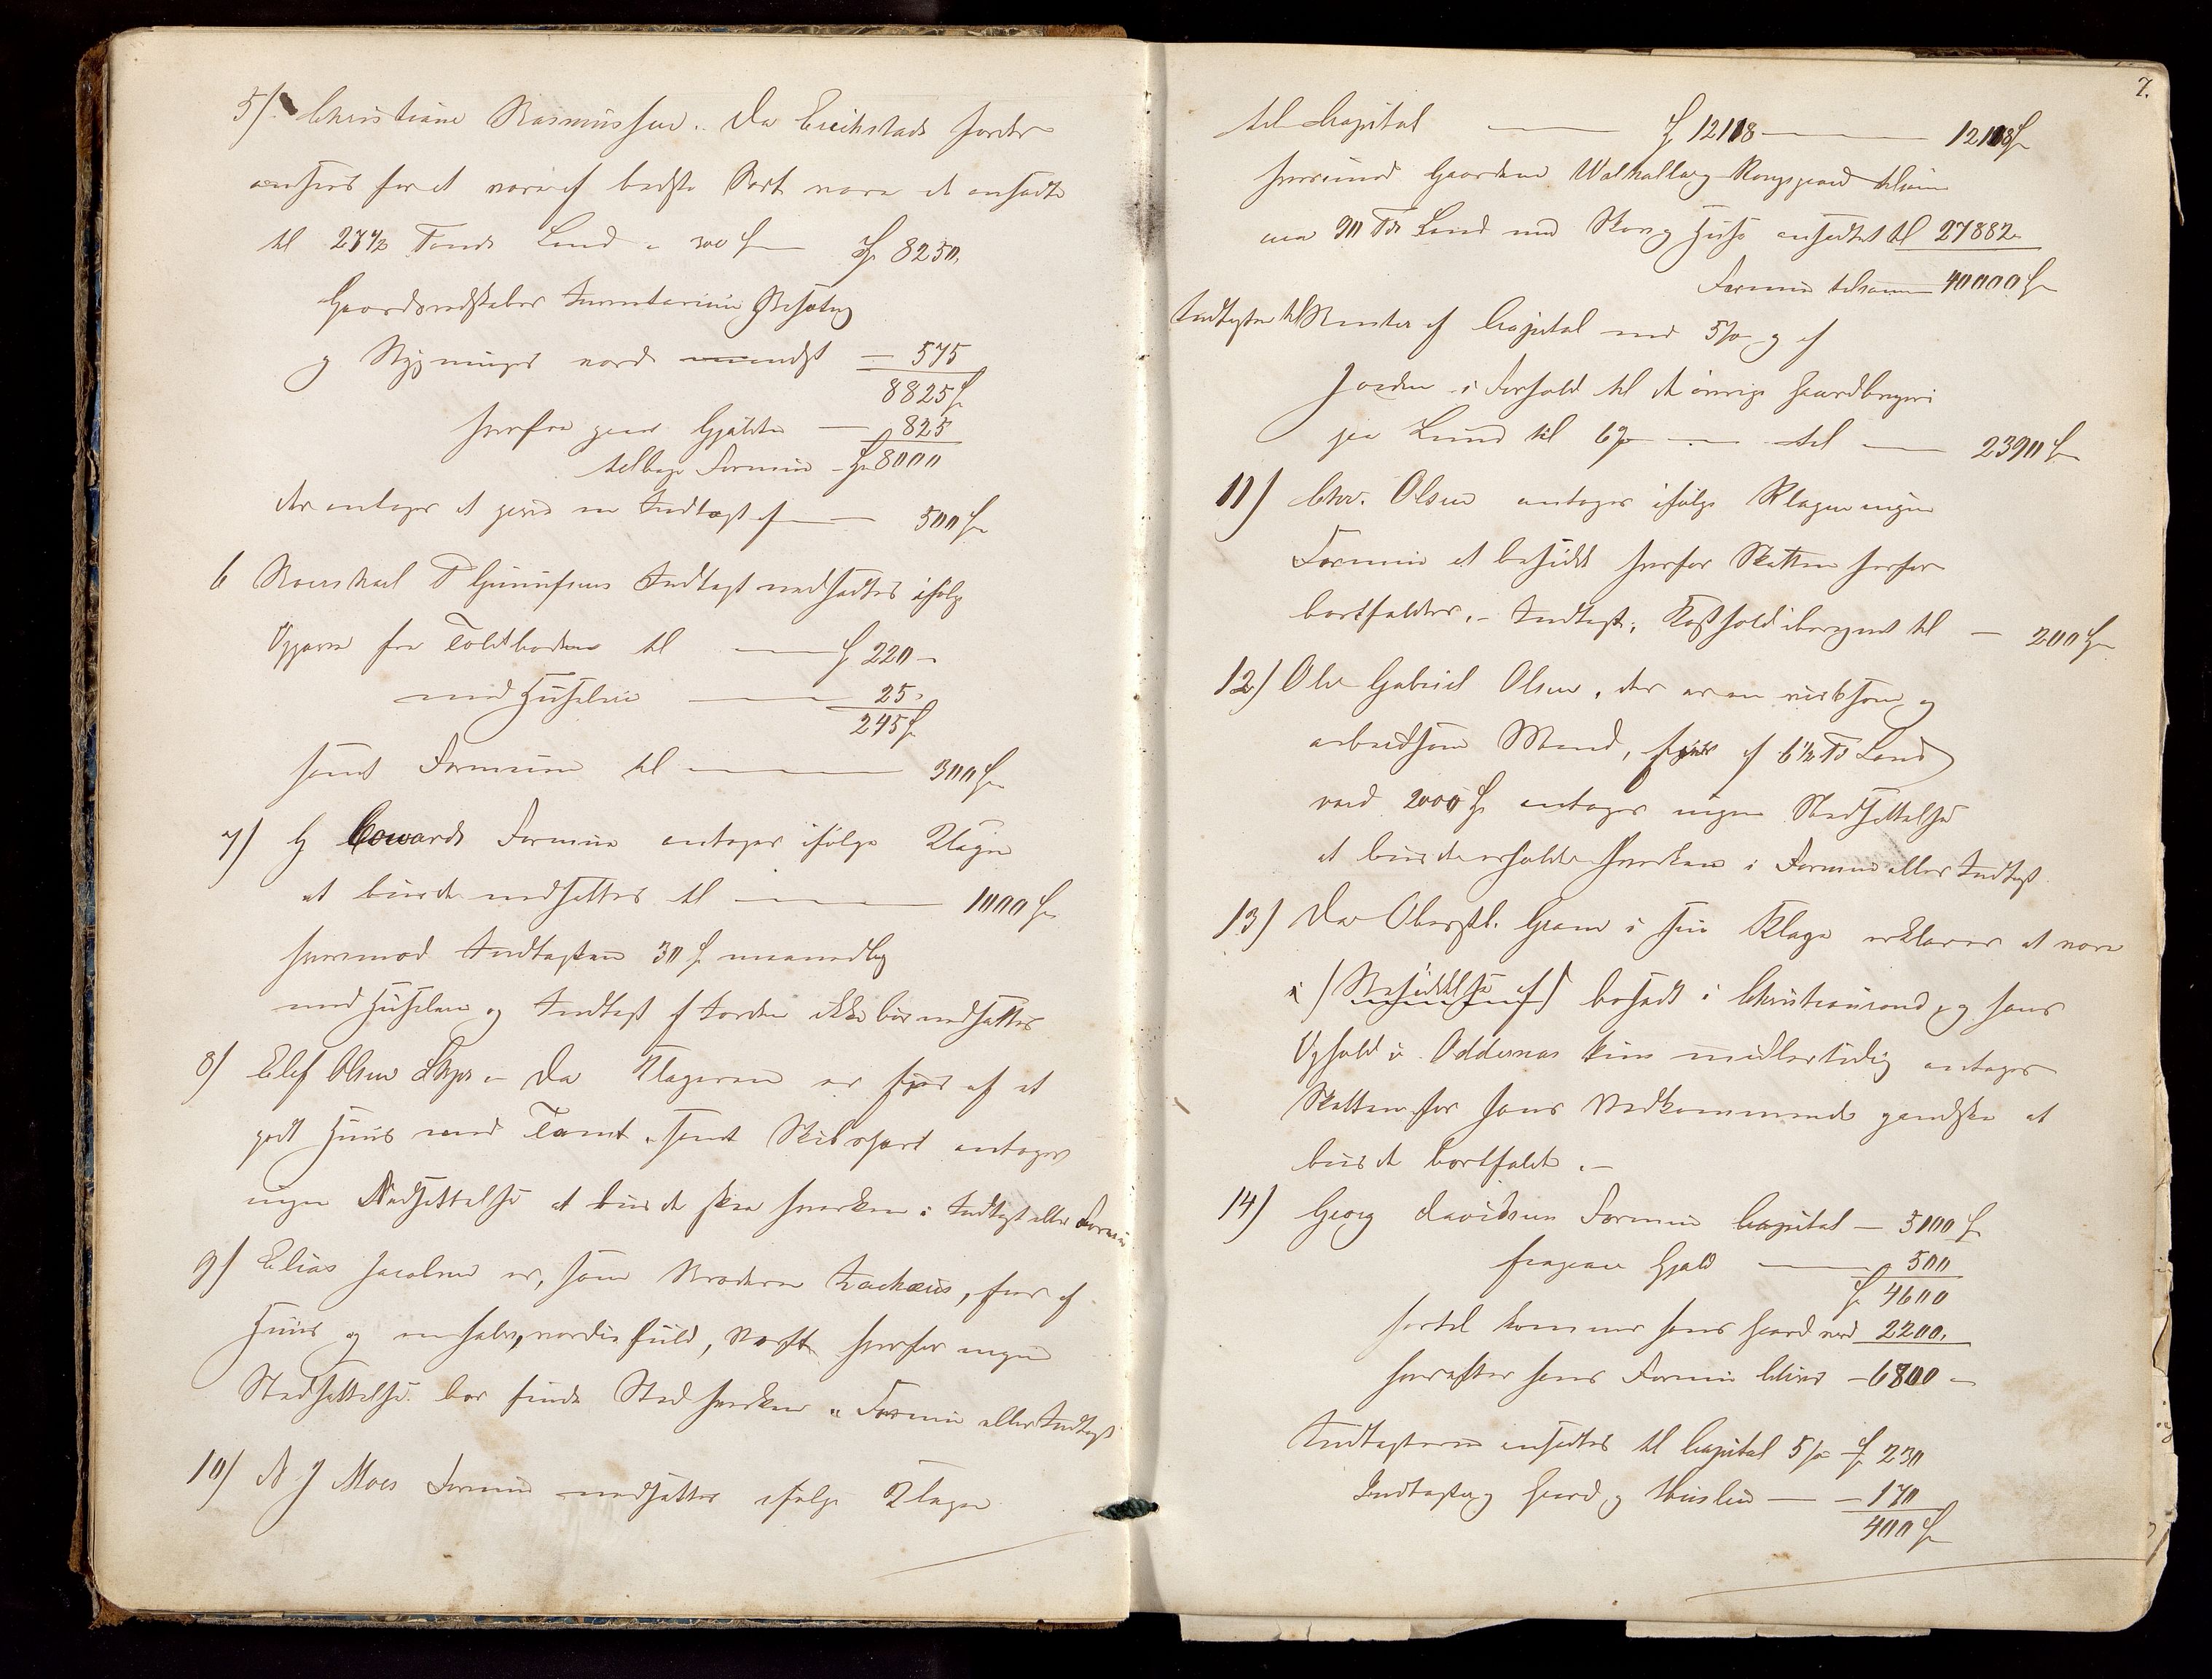 5/. Christiane Rasmussen. Da Erichstads Jorder
ansees for at være af bedste Sort vare de ansatte
til 27½ Tønde Land a 300 f — f 8250.
Gaardsredskaber Inventarium Besætng
og Bygninger værd mindst — 575
8825 f
herfra gaar Gjælden — 825
tilbage Formue — f 8000
der antages at give en Indtægt af — 500 f
6 T Gunufsens Indtægt nedsættes ifølge
Opgave fra Toldboden til — f 220 —
med Huusleie — 25.
245 f
samt Formuen til — 300 f
7) G Cowards Formue antages ifølge Klagen
at burde nedsættes til — 1000 f
hvorimod Indtægten 30 f maanedlig
med Huusleie og Indtægt af Jorden ikke bør nedsættes
8) Elef Olsen — Da Klageren er Eier af et
godt Huus med Tomt samt Skibspart antages
ingen Nedsættelse at burde skee hverken i Indtægt eller Formue
9) Elias Jacobsen er, som Broderen Zachæus, Eier af
Huus og en halv, værdiefuld, hvorfor ingen
Nedsættelse bør finde Sted hverken i Formue eller Indtægt
10) N J Moes Formue nedsættes ifølge Klagen
7.
til Capital — f 12118 — 12118 f
hvorimod Gaardene Walhalla og Kongsgaard tilsam
ca 90 Td Land med Skov og Huse ansættes til 27882
Formue tilsammen 40000 f
Indtægten til Renter af Capital med 5 % og af
Jorden i Forhold til de øvrige Gaardbrugere
paa Lund til 6 % — til — 2390 f
11) Chr. Olsen antages ifølge Klagen ingen
Formue at besidde hvorfor Skatten herfor
bortfalder. — Indtægt, Kosthold iberegnet til — 200 f
12) Ole Gabriel Olsen, der er en virksom og
arbeidsom Mand, Eier af 6½ Td Land
værd 2000 f antages ingen Nedsættelse
at burde erholde hverken i Formue eller Indtægt
13) Da Oberstl. Gram i sin Klage erklærer at være
i (Besiddelse af) bosadt i Christianssand, og hans
Ophold i Oddernæs kun midlertidig antages
Skatten for hans Vedkommende gandske at
burde bortfalde. —
14) Georg Davidsen Formue Capital — 5100 f
fragaar Gjæld — 500
f 4600
hertil kommer hans Gaard værd 2200.
hvorefter hans Formue bliver — 6800 —
Indtægterne ansættes til Capital 5 % f 230
Indtægt og Gaard og Huusleie — 170
400 f